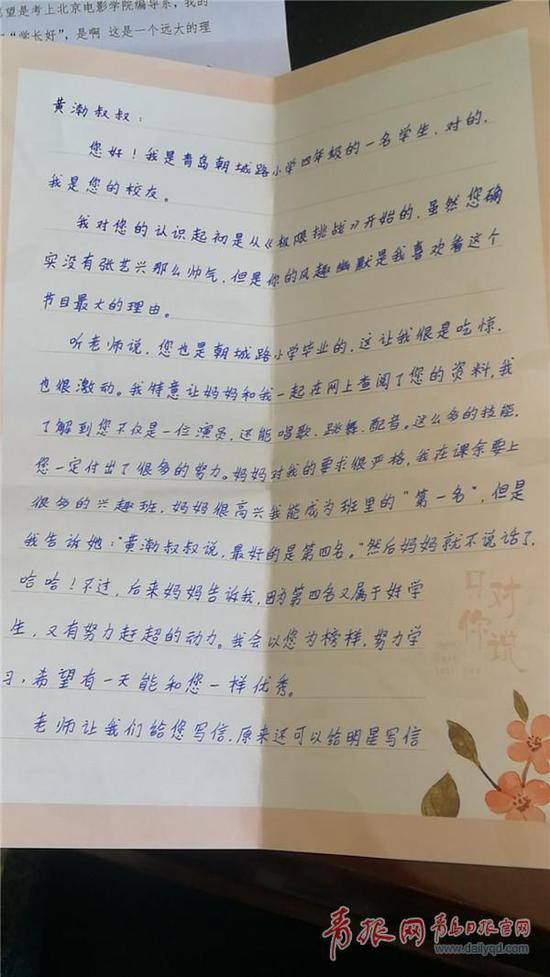 愿望是考上北京电影学院编导系，我的
"学长好"，是啊 这是一个远大的理
黄渤叔叔：
您好！我是青岛朝城路小学四年级的一名学生，对的，
我是您的校友。
我对您的认识起初是从《极限挑战》开始的，虽然您确
实没有张艺兴那么帅气，但是你的风趣幽默是我喜欢看这个
节目最大的理由。
听老师说，您也是朝城路小学毕业的，这让我很是吃惊，
也很激动。我特意让妈妈和我一起在网上查阅了您的资料，我
了解到您不仅是一位演员，还能唱歌、跳舞、配音。这么多的技能，
您一定付出了很多的努力。妈妈对我的要求很严格，我在课余要上
很多的兴趣班，妈妈很高兴我能成为班里的"第一名"，但是
我告诉她："黄渤叔叔说，最好的是第四名。"然后妈妈就不说话了，
哈哈！不过，后来妈妈告诉我，因为第四名又属于好学
生，又有努力赶超的动力。我会以您为榜样，努力学
习，希望有一天能和您一样优秀。
老师让我们给您写信，原来还可以给明星写信
只对你说
青报网 青岛日报官网
www.dailyqd.com